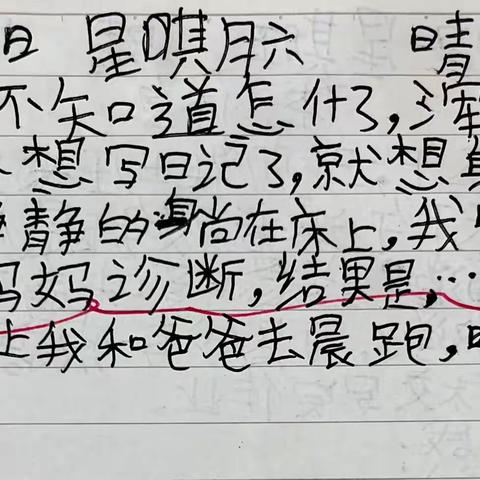 日 星期六 晴
不知道怎什了,浑
想写日记了,就想
静静的躺在床上,我
妈妈诊断,结果是,…
上我和爸爸去晨跑,